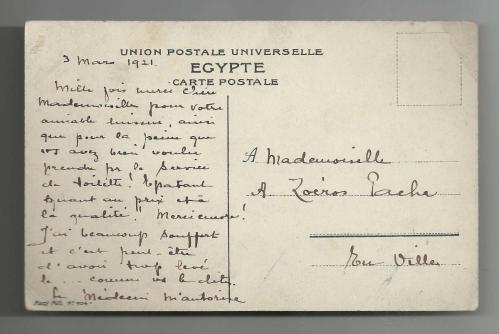 UNION POSTALE UNIVERSELLE
EGYPTE
CARTE POSTALE
3 Mars 1921.
Mille fois merci Chère
Mademoiselle pour votre
aimable missive, ainsi
que pour la peine que
vs avez bien voulu
prendre pr le Service
de toilette! Epatant
quant au prix et à
la qualité! Merci encore!
J'ai beaucoup souffert
et c'est peut-être
d'avoir trop levé
le ... comme vs le dites.
Le Médecin m'autorise
A Mademoiselle
A. Zoéros Pacha
En Ville